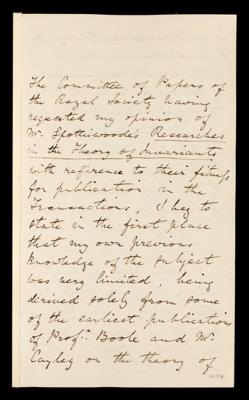 The Committee of Papers of
the Royal Society having
requested my opinion of
Mr. Spottiswoode's Researches
in the Theory of Invariants
with reference to their fitness
for publication in the
Transactions, I beg to
state in the first place
that my own previous
knowledge of the subject
was very limited, being
derived solely from some
of the earliest publications
of Profr. Boole and Mr.
Cayley on the theory of